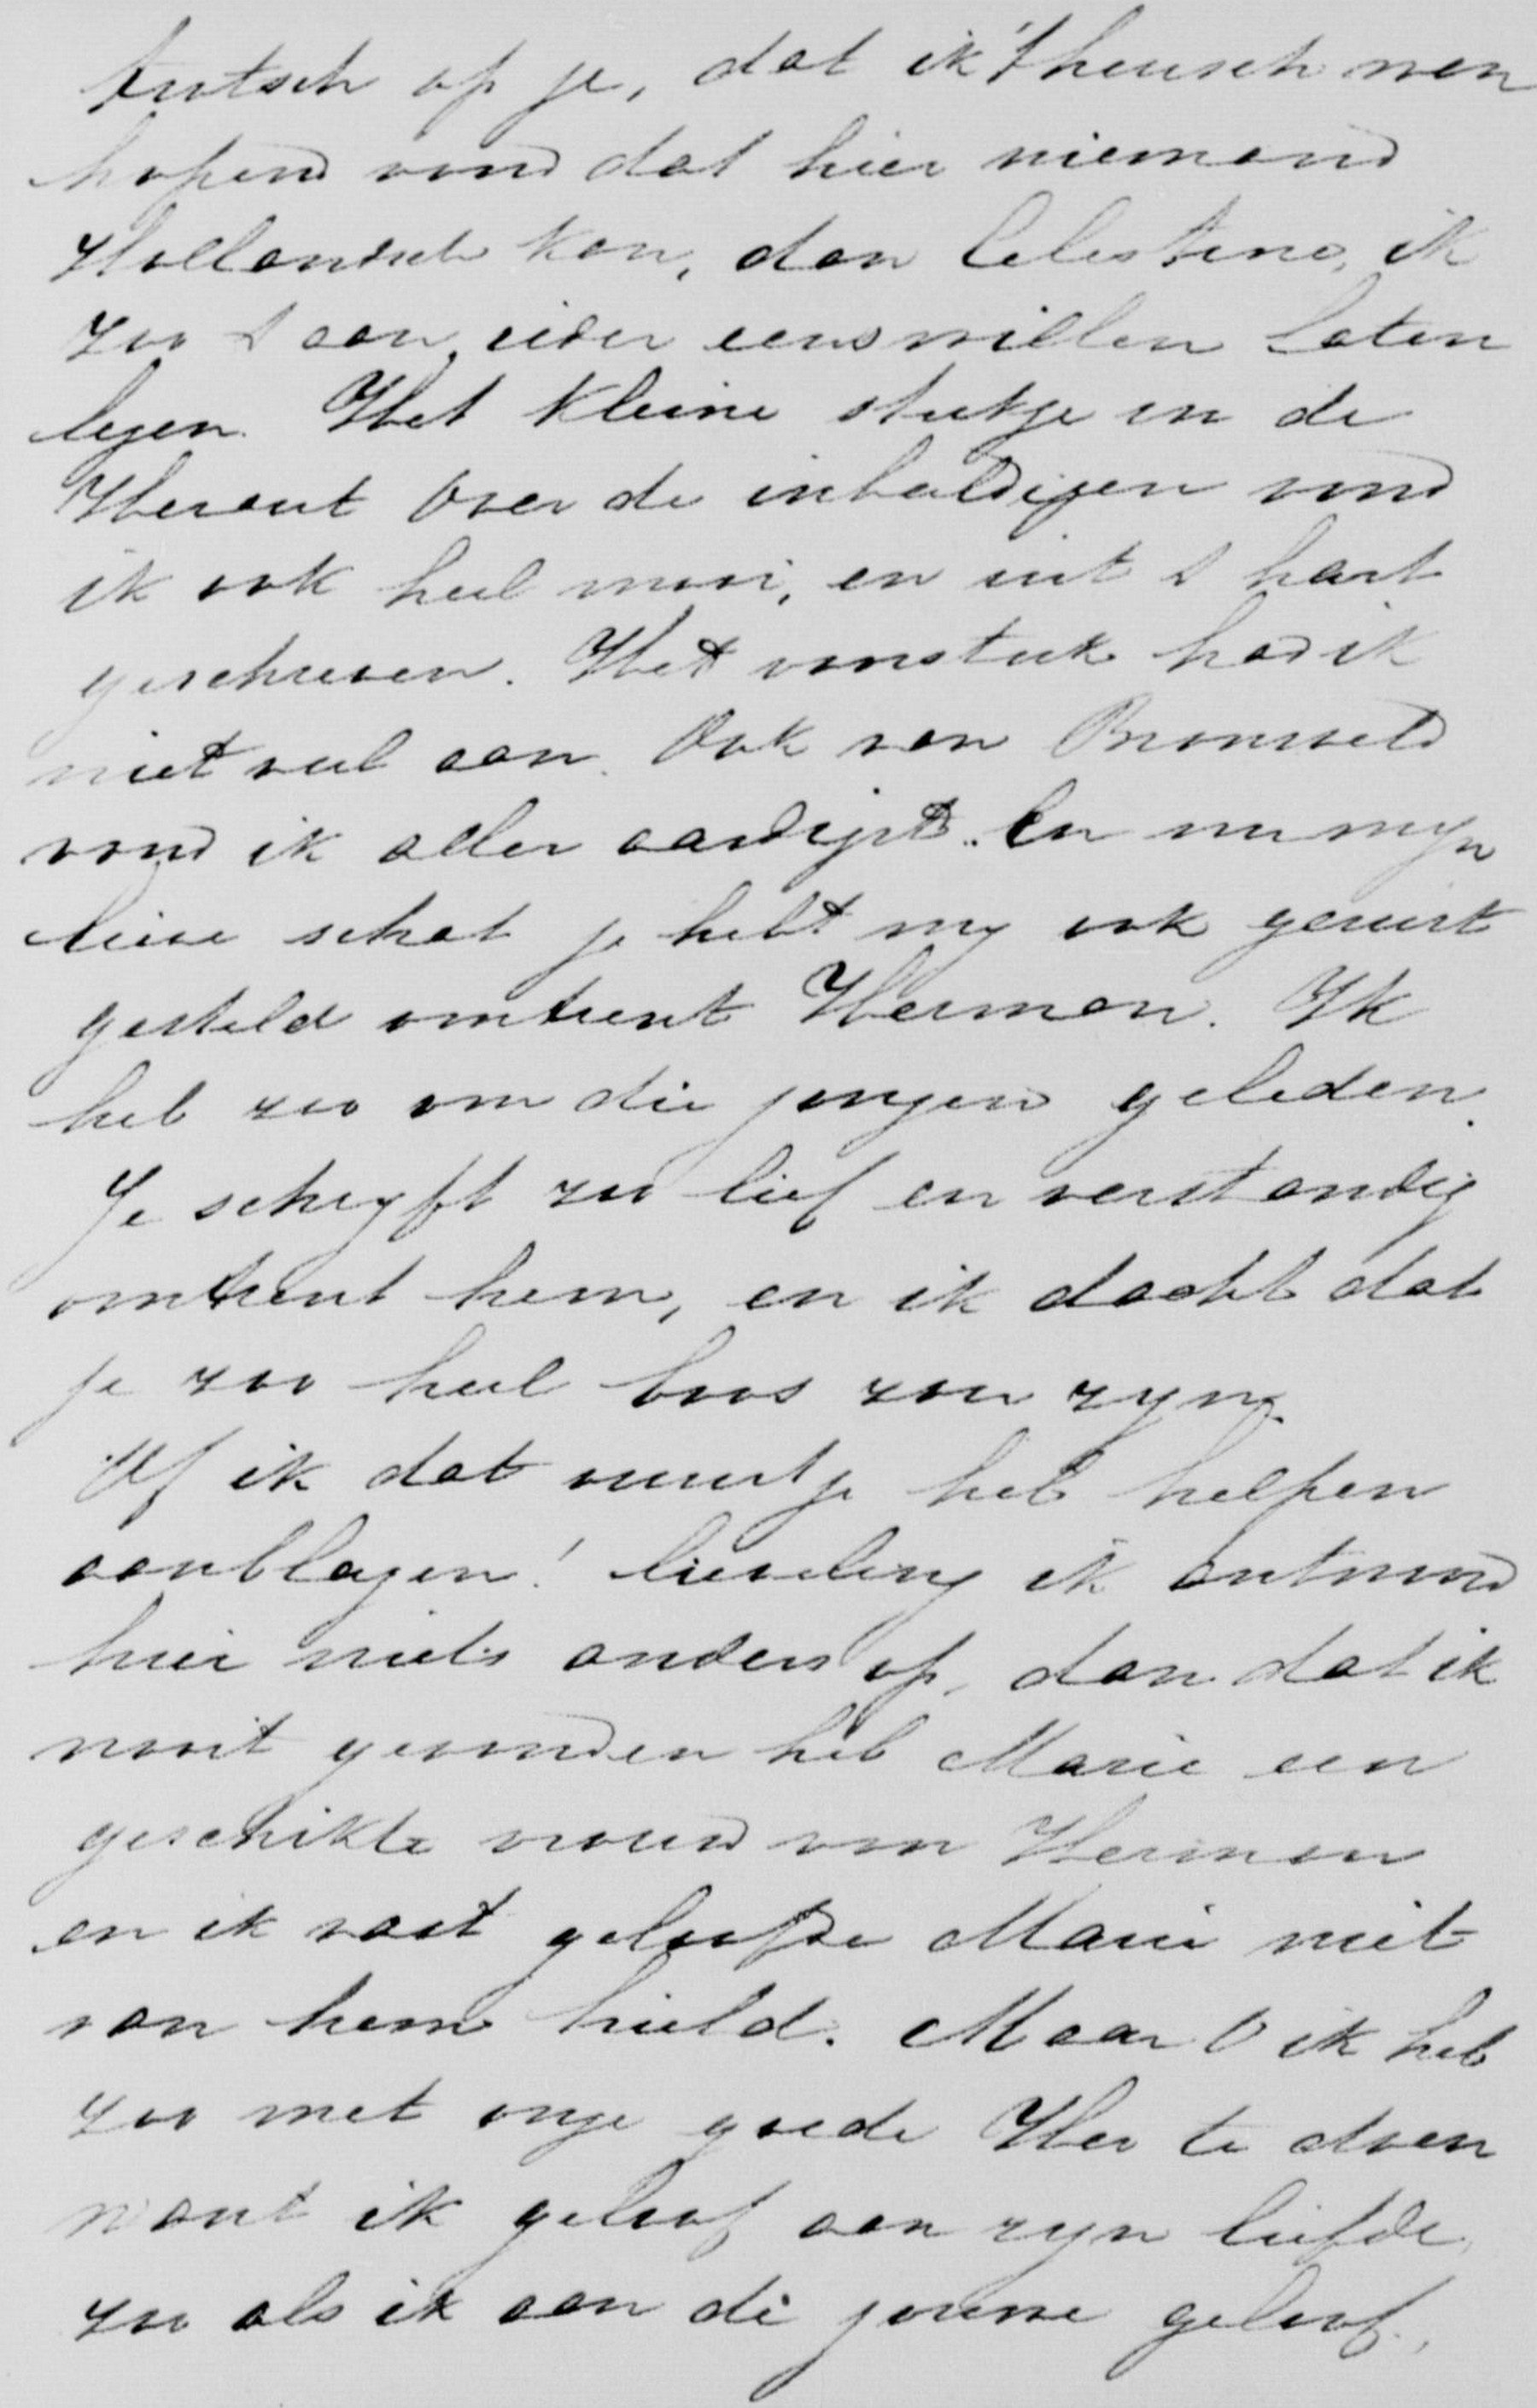 trotsch op je, dat ik 't heusch wan
hopend vond dat hier niemand
Hollandsch kan, dan Celestine, ik
zoo 't aan ieder eens willen laten
lezen. Het kleine stukje in de
Heraut over de inhuldigen vond
ik ook heel mooi, en uit 't hart
geschreven. Het voorstuk had ik
niet veel aan. Ook van Bronsveld
vond ik aller aardigst. En nu myn
lieve schat je hebt my ook gerust
gesteld omtrent Herman. Ik
heb zoo om die jongen geleden.
Je schryft zoo lief en verstandig
omtrent hem, en ik dacht dat
je zoo heel boos zou zyn.
Of ik dat vuurtje heb helpen
aanblazen! lieveling ik antwoord
hier niets anders op, dan dat ik
nooit gevonden heb Marie een
geschikte vrouw voor Herman
en ik vast geloofde Marie niet
van hem hield. Maar O ik heb
zoo met onze goede Her te doen
want ik geloof aan zyn liefde,
zoo als ik aan de jouwe geloof.